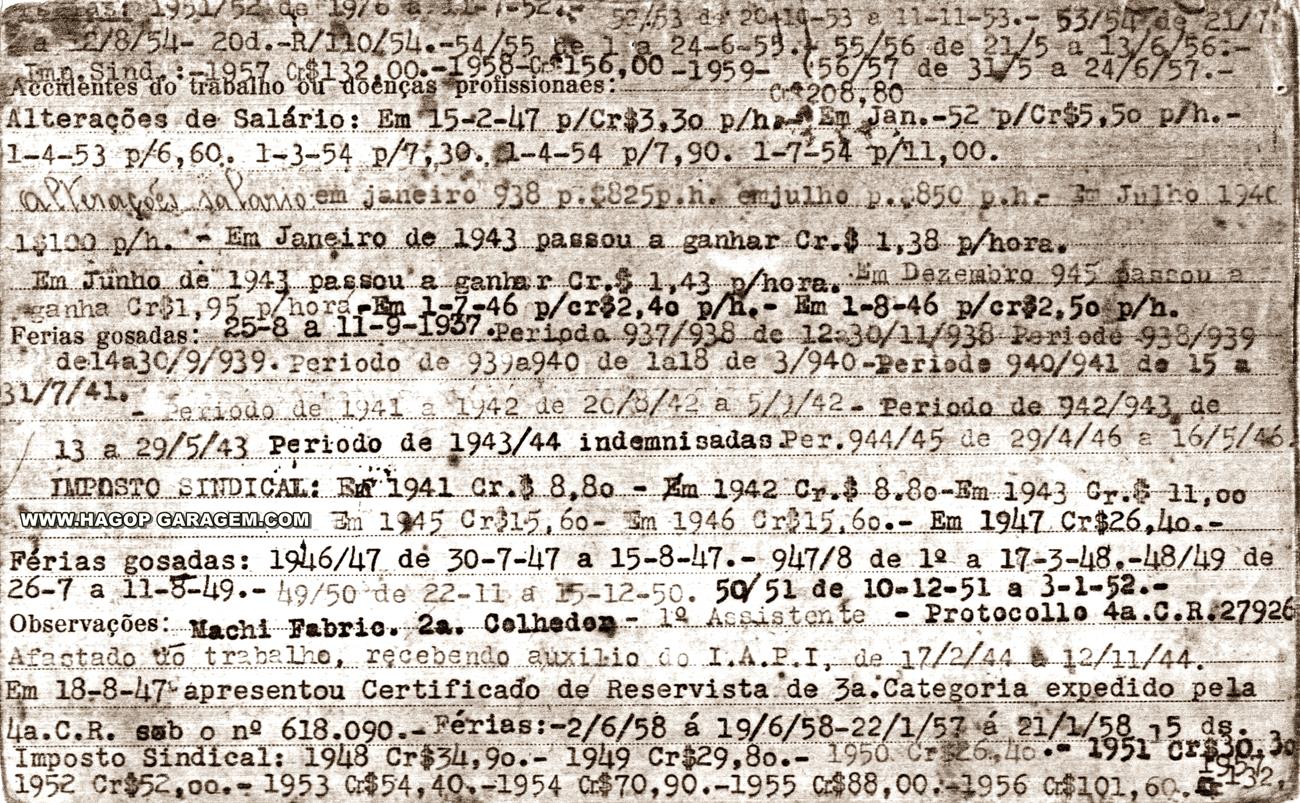 1951/52 de 19/6 a 11-7-52.- 52/53 de 20-10-53 a 11-11-53.- 53/54 de 21/7
a 12/8/54- 20d.-R/110/54.-54/55 de 1 a 24-6-55.- 55/56 de 21/5 a 13/6/56.-
Imp.Sind.:-1957 Cr$132,00.-1958-Cr$156,00 -1959- (56/57 de 31/5 a 24/6/57.-
Accidentes do trabalho ou doenças profissionaes: Cr$208,80
Alterações de Salário: Em 15-2-47 p/Cr$3,30 p/h.- Em Jan.-52 p/Cr$5,50 p/h.-
1-4-53 p/6,60. 1-3-54 p/7,30. 1-4-54 p/7,90. 1-7-54 p/11,00.
alterações salario em janeiro 938 p.$825p.h. emjulho p.$850 p.h.- Em Julho 1940
1$100 p/h. - Em Janeiro de 1943 passou a ganhar Cr.$ 1,38 p/hora.
Em Junho de 1943 passou a ganhar Cr.$ 1,43 p/hora. Em Dezembro 945 passou a
ganha Cr$1,95 p/hora-Em 1-7-46 p/cr$2,40 p/h.- Em 1-8-46 p/cr$2,50 p/h.
Ferias gosadas: 25-8 a 11-9-1937.Periodo 937/938 de 12a30/11/938 Periode 938/939
de14a30/9/939.Periodo de 939a940 de 1a18 de 3/940-Periode 940/941 de 15 a
31/7/41.
- Periodo de 1941 a 1942 de 20/8/42 a 5/9/42- Periodo de 942/943 de
13 a 29/5/43 Periodo de 1943/44 indemnisadas.Per.944/45 de 29/4/46 a 16/5/46.
IMPOSTO SINDICAL: Em 1941 Cr.$ 8,80 - Em 1942 Cr.$ 8.80-Em 1943 Cr.$ 11,00
WWW.HAGOP GARAGEM.COM Em 1945 Cr$15,60- Em 1946 Cr$15,60.- Em 1947 Cr$26,40.-
Férias gosadas: 1946/47 de 30-7-47 a 15-8-47.- 947/8 de 1º a 17-3-48.-48/49 de
26-7 a 11-8-49.- 49/50 de 22-11 a 15-12-50. 50/51 de 10-12-51 a 3-1-52.-
Observações: Machi Fabric. 2a. Colhedor - 1º Assistente - Protocollo 4a.C.R.27926
Afastado do trabalho, recebendo auxilio do I.A.P.I, de 17/2/44 a 12/11/44.
Em 18-8-47 apresentou Certificado de Reservista de 3a.Categoria expedido pela
4a.C.R. sob o nº 618.090.-Férias:-2/6/58 á 19/6/58-22/1/57 á 21/1/58 ,5 ds.
Imposto Sindical: 1948 Cr$34,90.- 1949 Cr$29,80.- 1950 Cr$26,40.- 1951 Cr$30,30
1957
1952 Cr$52,00.- 1953 Cr$54,40.-1954 Cr$70,90.-1955 Cr$88,00.-1956 Cr$101,60.- 132,